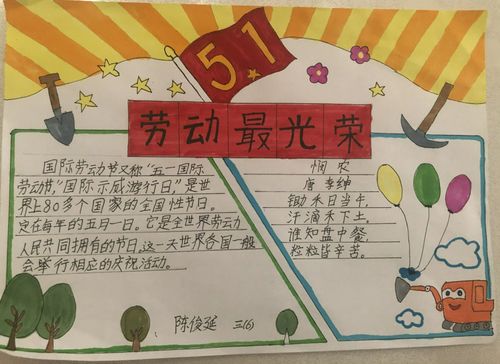 5.1
劳动最光荣
国际劳动节又称"五一国际
劳动节,"国际示威游行日"是世
界上80多个国家的全国性节日。
定在每年的五月一日。它是全世界劳动
人民共同拥有的节日,这一天世界各国一般
会举行相应的庆祝活动。
悯农
唐 李绅
锄禾日当午,
汗滴禾下土。
谁知盘中餐,
粒粒皆辛苦。
陈俊延 三(6)